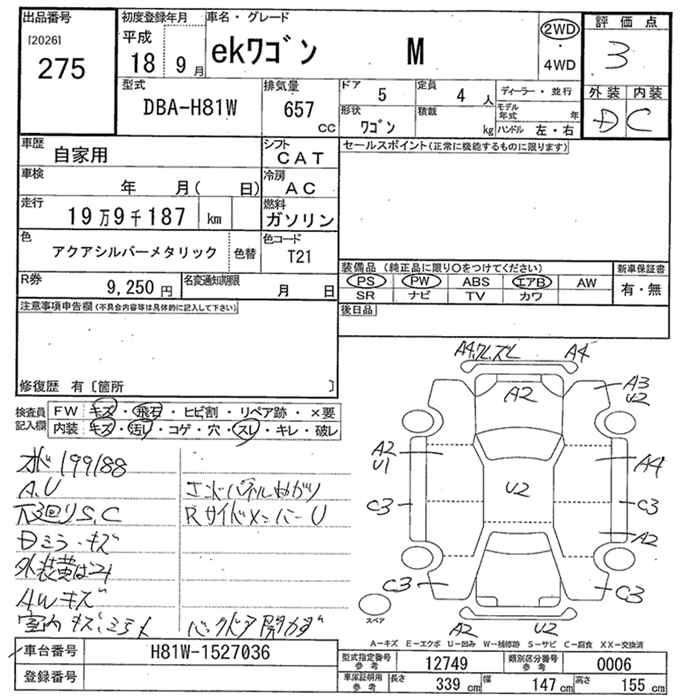 出品番号 初度登録年月 車名・グレード 2WD 評価点
[2026] 平成 ekワゴン M ・ 3
275 18 9月 4WD 外装 内装
型式 排気量 ドア 5 定員 4人 ディーラー・並行 D C
DBA-H81W 657 cc 形状 ワゴン 積載 kg モデル年式 年
ハンドル 左・右
車歴 自家用 シフト CAT セールスポイント(正常に機能するものに限ります)
車検 年 月( 日) 冷房 AC
走行 19万9千187 km 燃料 ガソリン
色 アクアシルバーメタリック 色替 色コード T21
R券 9,250円 名変通知期限 月 日
装備品(純正品に限り○をつけてください) 新車保証書
PS PW ABS エアB AW 有・無
SR ナビ TV カワ
後日品
注意事項申告欄(不具合内容等は具体的に記入して下さい)
修復歴 有〔箇所 〕
検査員記入欄 FW キズ・飛石・ヒビ割・リペア跡・×要
内装 キズ・汚レ・コゲ・穴・スレ・キレ・破レ
199188
A.U エンドパネルまがり
下廻りS,C RサイドメンバーU
Dミラーキズ
AWキズ
室内キズ
A4 A4
A2
A3
U2
A2
U1
U2
A4
C3 C3
A2
C3 C3
A2 U2
スペア
A−キズ E−エクボ U−凹み W−補修跡 S−サビ C−腐食 XX−交換済
車台番号 H81W-1527036
登録番号
型式指定番号 参考 12749 類別区分番号 参考 0006
車庫証明用 参考 長さ 339 cm 幅 147 cm 高さ 155 cm